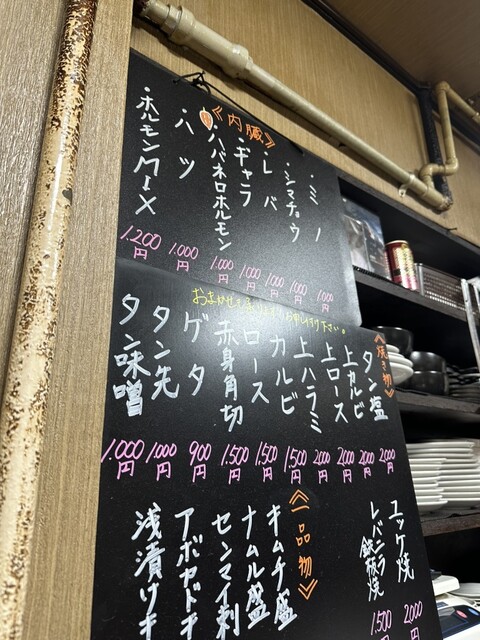 《内臓》
・ミノ
1000円
・シマチョウ
1000円
・レバ
1000円
・ギャラ
1000円
・ハバネロホルモン
1.000円
・ハツ
1.000円
1.200円
お申し付け下さい。
《焼き物》
タン塩
2000円
上カルビ
2000円
上ロース
2000円
上ハラミ
2000円
カルビ
1.500円
ロース
1.500円
赤身角切
1.500円
ゲタ
900円
タン先
1.000円
タン味噌
1.000円
ユッケ焼
2000円
レバニラ鉄板焼
1.500円
《一品物》
キムチ盛
ナムル盛
センマイ刺
アボカドキ
浅漬けキ